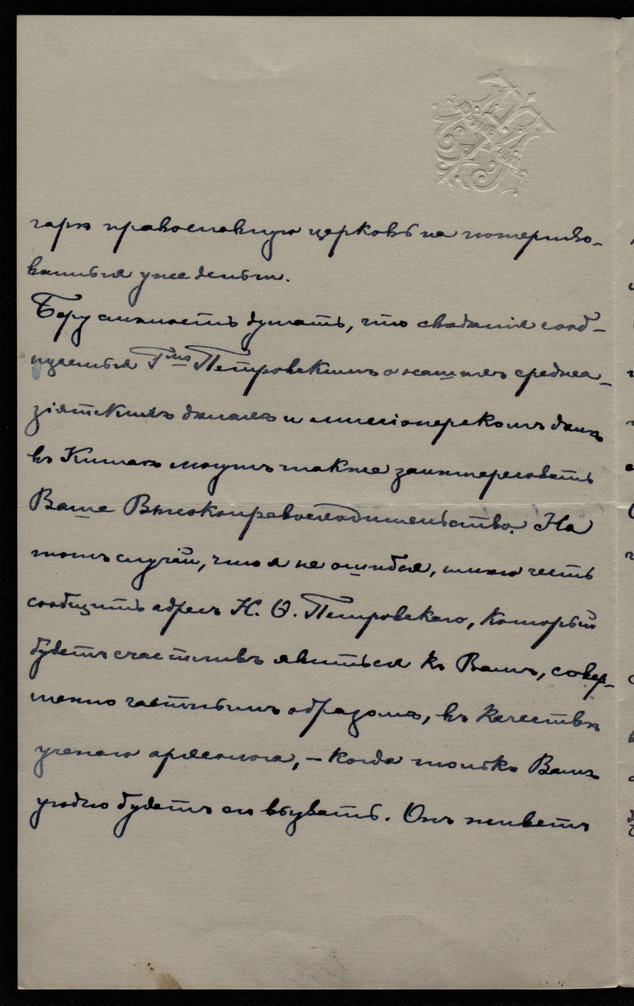 гарю православную церковь на пожертво-
ванныя уже деньги.
Беру смелость думать, что сведенiя сооб-
щаемыя Г<sup>мъ</sup> Петровскимъ о нашихъ среднеа-
зiятскихъ делахъ и миссiонерскомъ деле
въ Китае могутъ также заинтересовать
Ваше Высокопревосходительство. На
тотъ случай, что я не ошибся, имею честь
сообщить адресъ Н. Ѳ. Петровскаго, который
будетъ счастливъ явиться къ Вамъ, совер-
шенно частнымъ образомъ, въ качестве
ученаго археолога, – когда только Вамъ
угодно будетъ его вызвать. Онъ живетъ